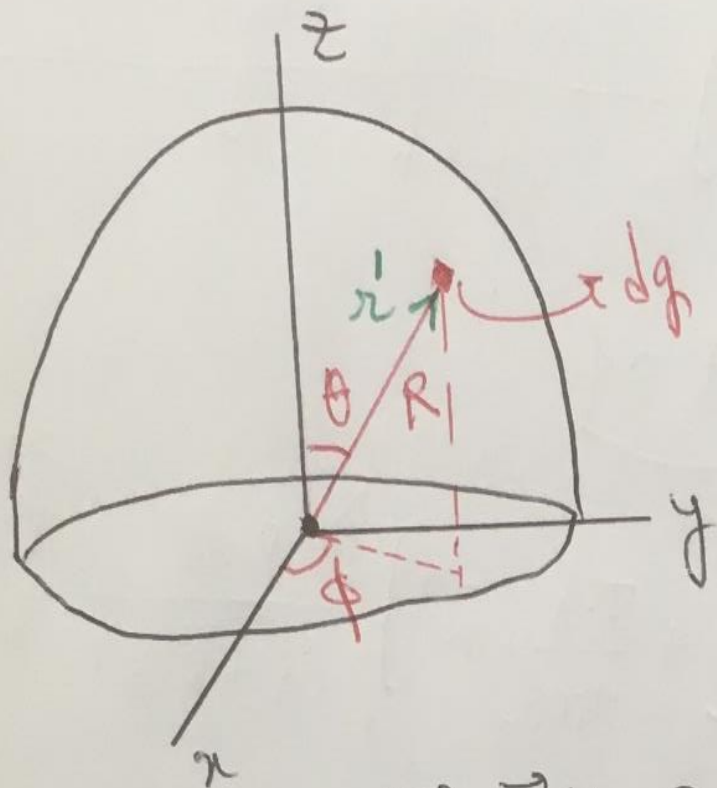 z
r'
dq
θ
R
y
φ
x